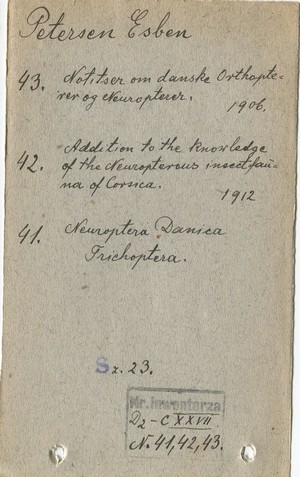 Petersen Esben
43. Notitser om danske Orthopte-
rer og Neuropterer.
1906.
42. Addition to the knowledge
of the Neuropterous insect fau-
na of Corsica.
1912
41. Neuroptera Danica
Trichoptera.
Sz. 23.
Nr. inwentarza
D2 - C XXVII
N. 41, 42, 43.